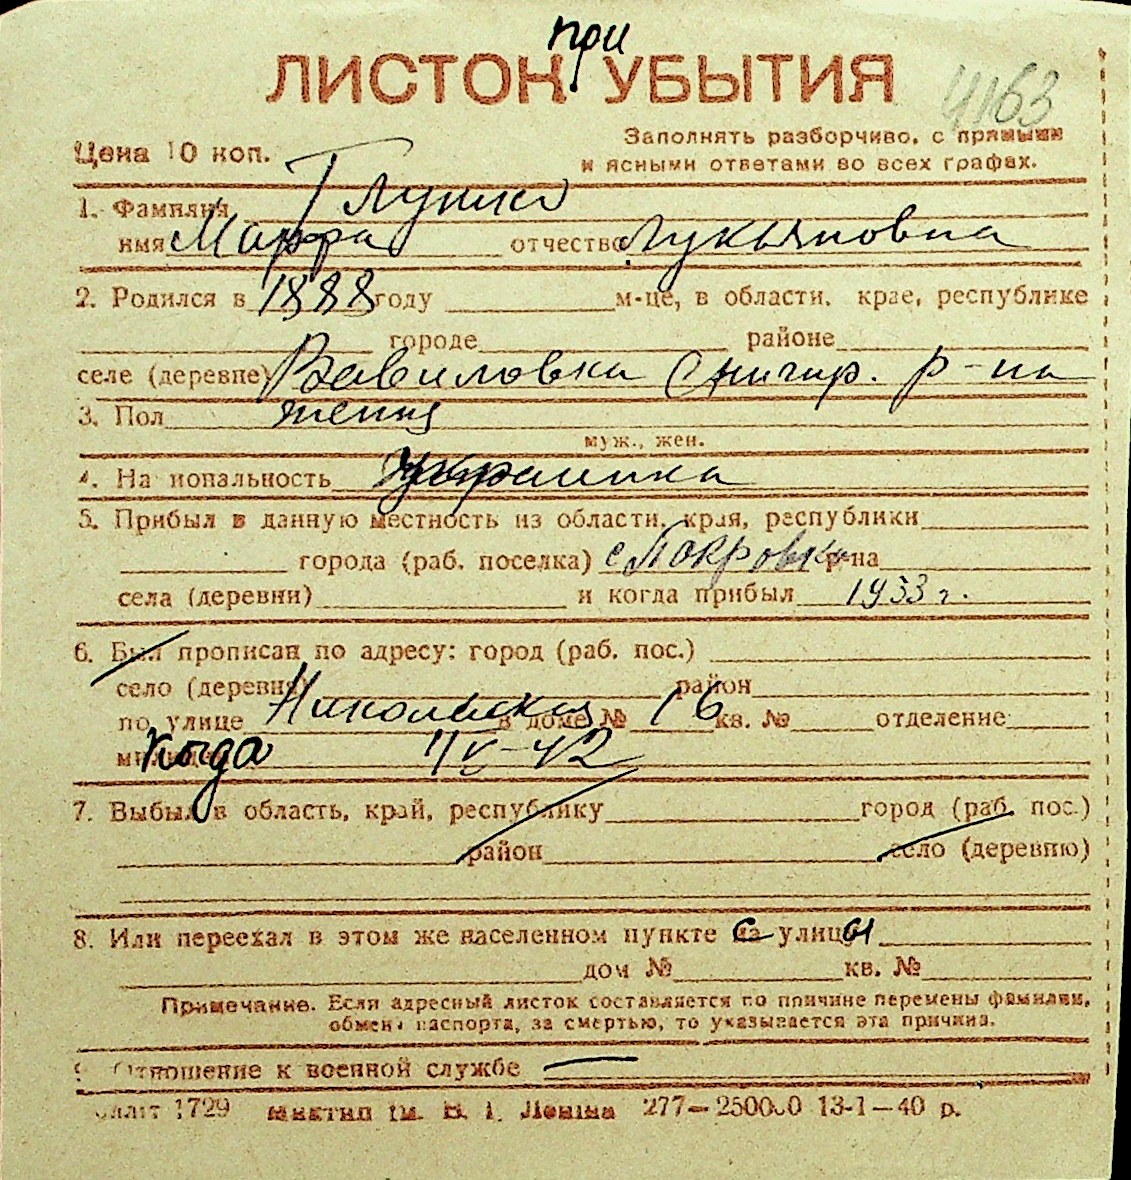 при
ЛИСТОК УБЫТИЯ
4163
Цена 10 коп.
Заполнять разборчиво, с прямыми
и ясными ответами во всех графах.
1. Фамилия Глушко
имя Марфа отчество Лукьяновна
2. Родился в 1888 году м-це, в области, крае, республике
городе районе
селе (деревне) Вавиловка Снигир. р-на
3. Пол женщ
муж., жен.
4. Национальность украинка
5. Прибыл в данную местность из области, края, республики
города (раб. поселка) с Покровка р-на
села (деревни) и когда прибыл 1933 г.
6. Был прописан по адресу: город (раб. пос.)
село (деревня) район
по улице Никольская в доме № 16 кв. № отделение
когда 4/V-42
7. Выбыл в область, край, республику город (раб. пос.)
район село (деревню)
8. Или переехал в этом же населенном пункте с улицы
дом № кв. №
Примечание. Если адресный листок составляется по причине перемены фамилии,
обмена паспорта, за смертью, то указывается эта причина.
9. Отношение к военной службе —
1729 им. В. И. Ленина 277—250000 13-1—40 р.